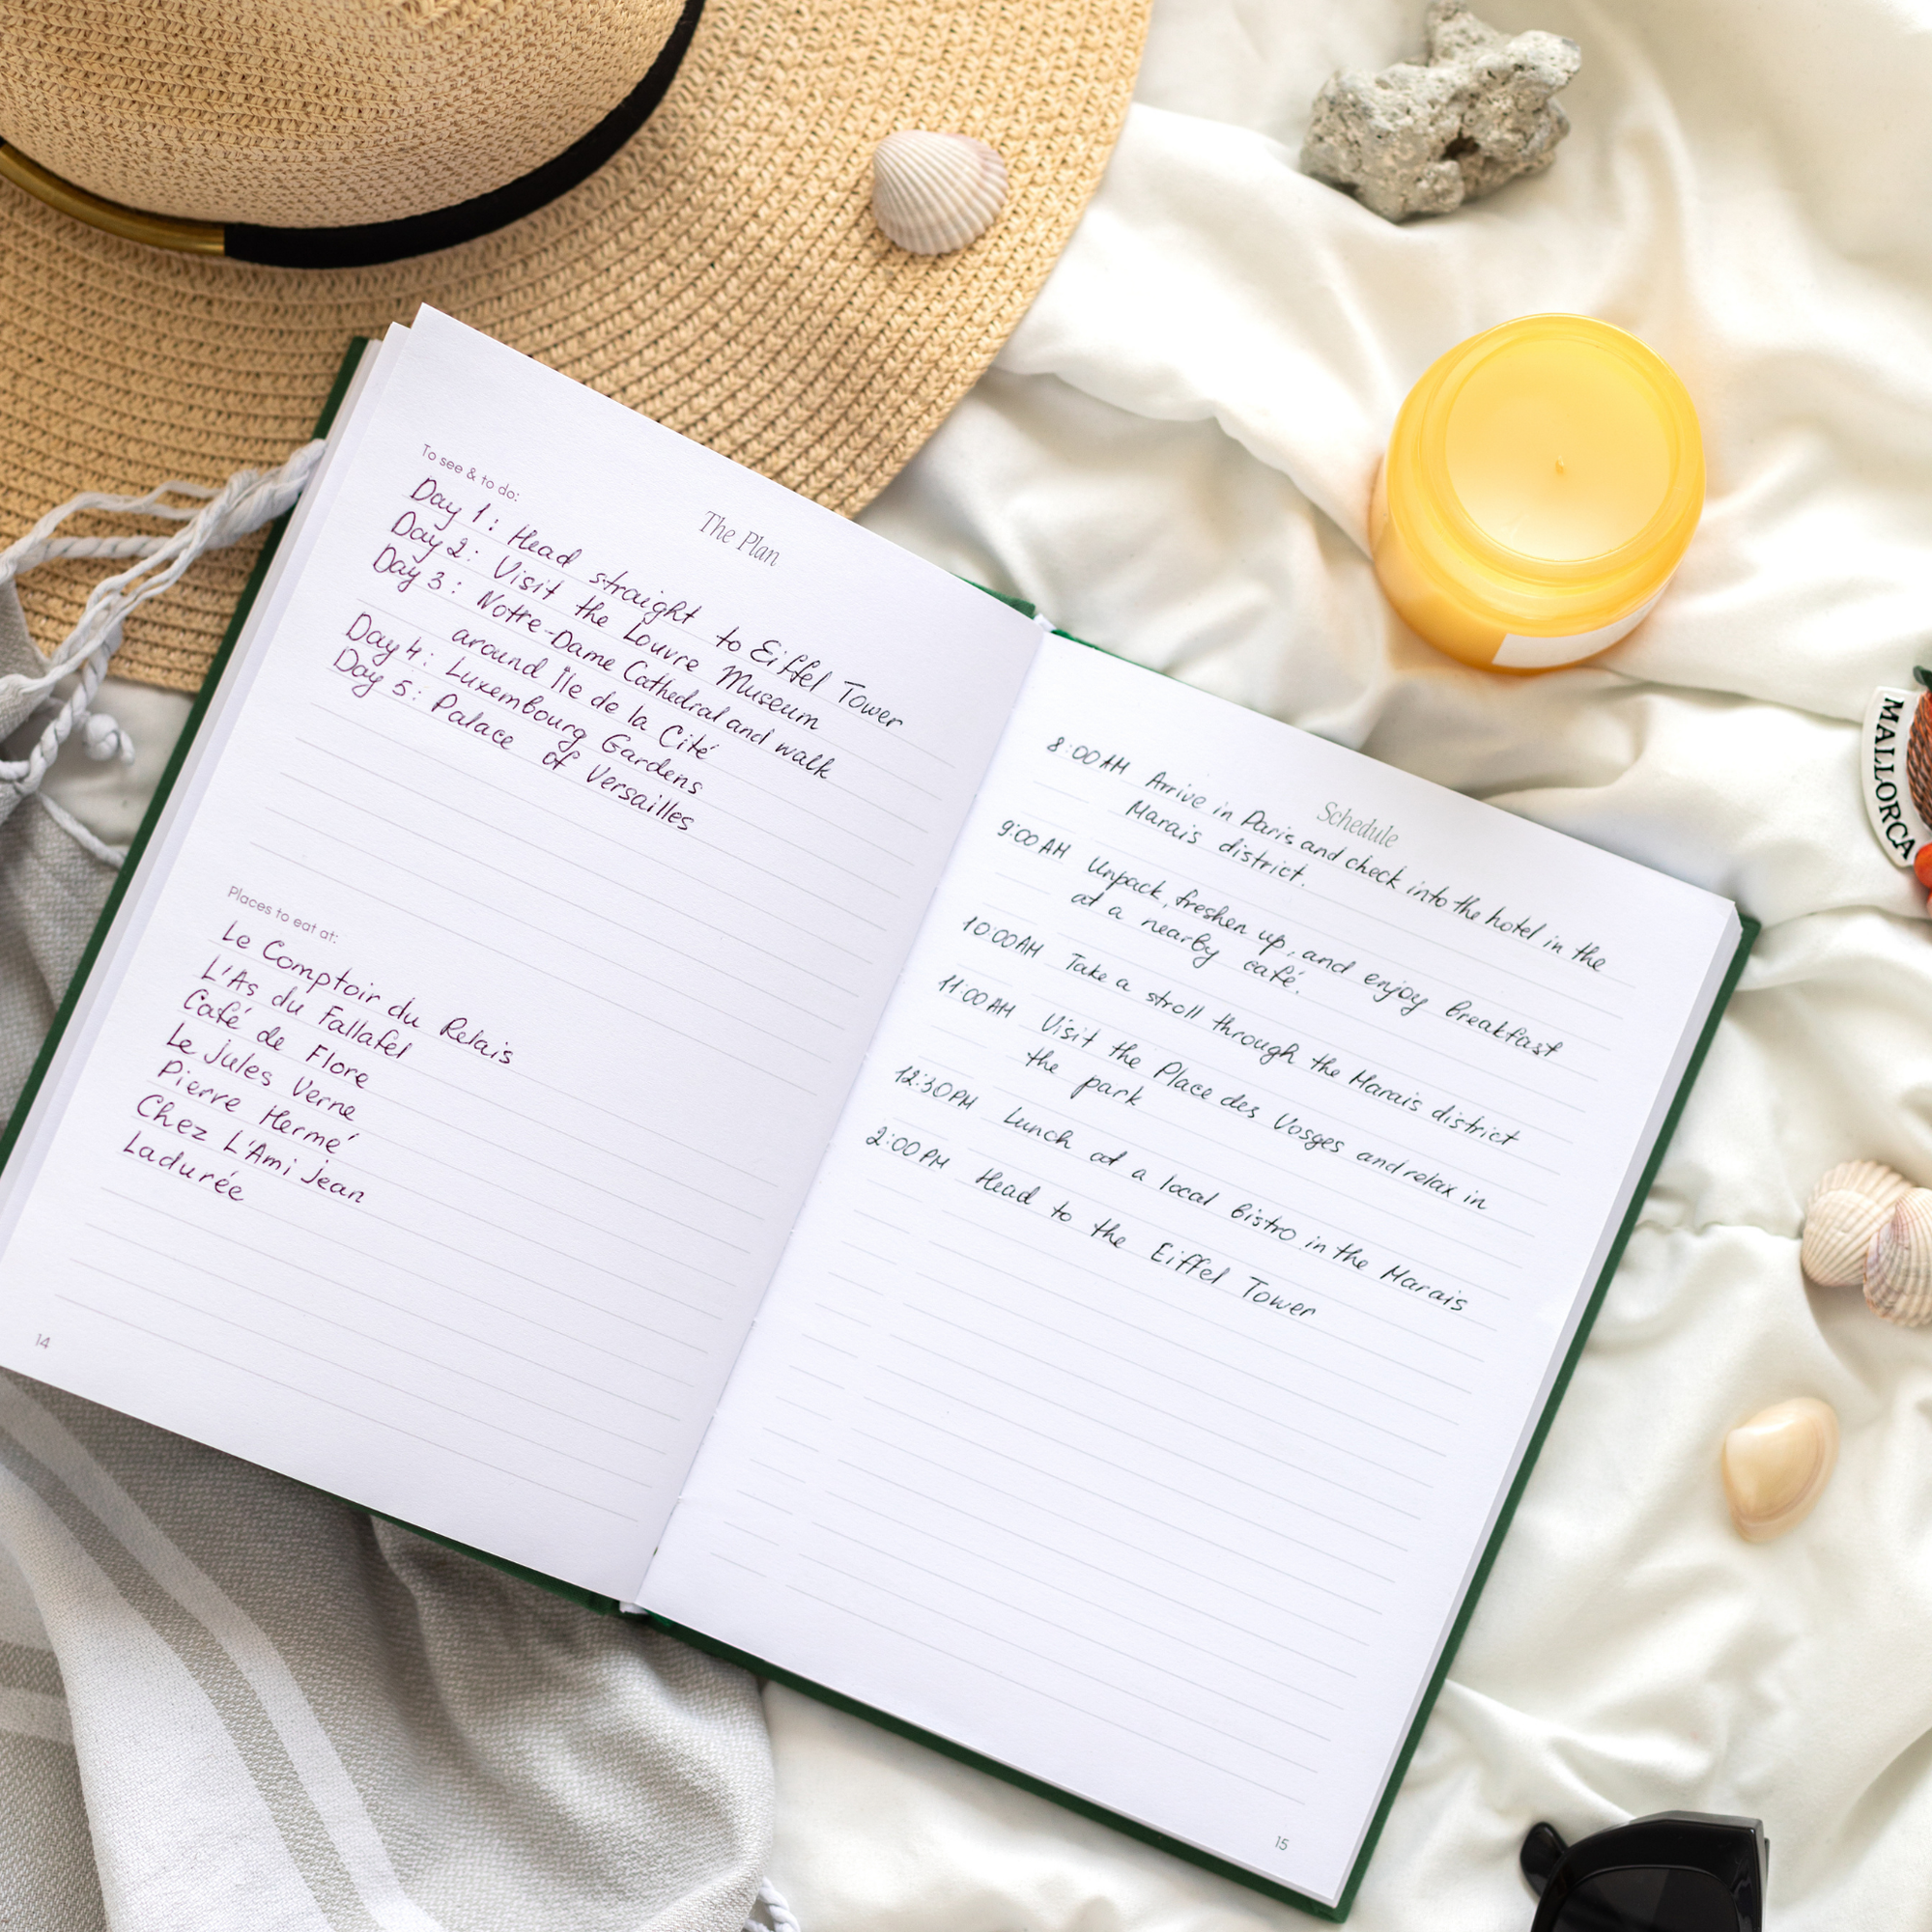 The Plan
To see & to do:
Day 1: Head straight to Eiffel Tower
Day 2: Visit the Louvre Museum
Day 3: Notre-Dame Cathedral and walk
around Île de la Cité
Day 4: Luxembourg Gardens
Day 5: Palace of Versailles
Places to eat at:
Le Comptoir du Relais
L'As du Fallafel
Café de Flore
Le Jules Verne
Pierre Hermé
Chez L'Ami Jean
Ladurée
14
Schedule
8:00 AM Arrive in Paris and check into the hotel in the
Marais district.
9:00 AM Unpack, freshen up, and enjoy breakfast
at a nearby café.
10:00 AM Take a stroll through the Marais district
11:00 AM Visit the Place des Vosges and relax in
the park
12:30 PM Lunch at a local bistro in the Marais
2:00 PM Head to the Eiffel Tower
15
MALLORCA